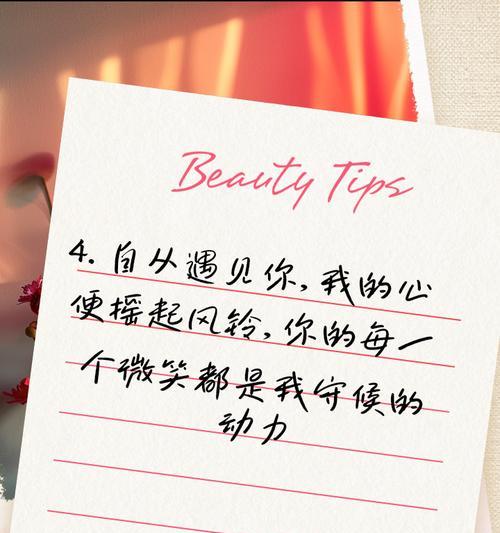 Beauty Tips
4. 自从遇见你,我的心
便摇起风铃,你的每一
个微笑都是我守候的
动力